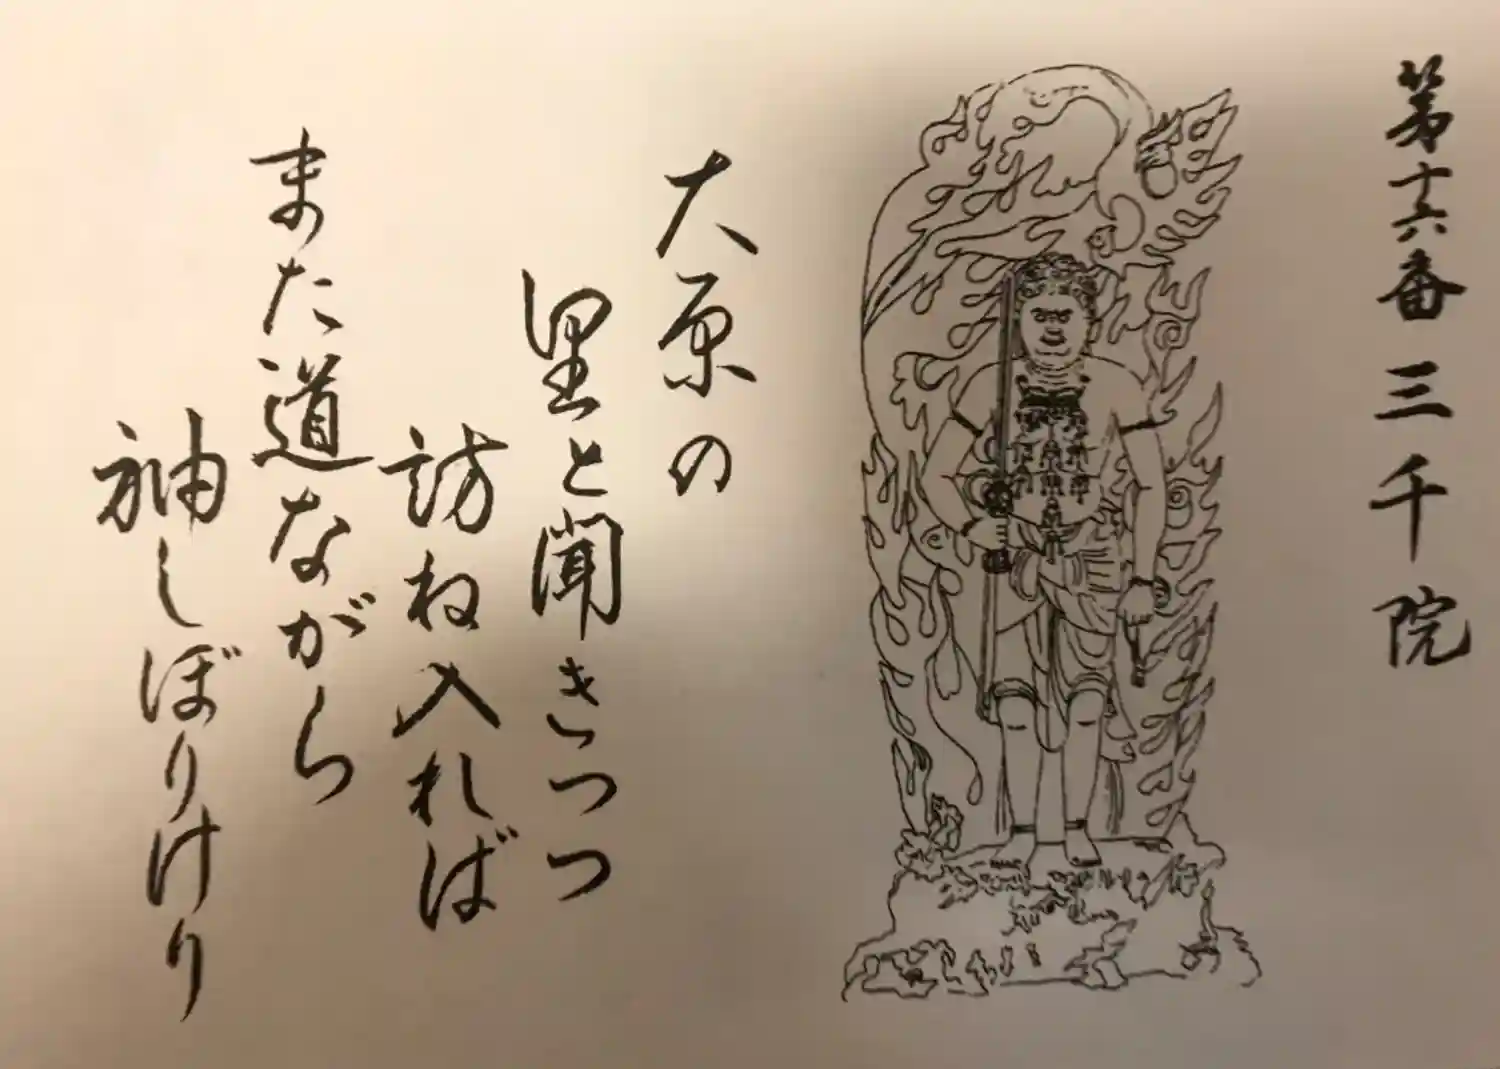 第十六番 三千院
大原の
里と聞きつつ
訪ね入れば
また道ながら
袖しぼりけり